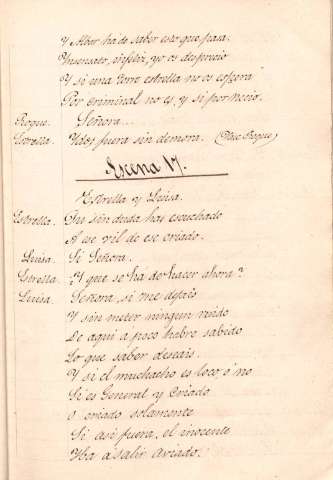 Y Albar ha de saber esto que pasa.
Insensato, infeliz, yo os desprecio
Y si una torre estrella no os espera
Por criminal no es, y si por necio.
Roque. Señora...
Estrella. Idos fuera sin demora. (Vase Roque)
Escena 17.
Estrella y Luisa.
Estrella. Tu sin duda has escuchado
A ese vil de ese criado.
Luisa. Si Señora.
Estrella. ¿Y que se ha de hacer ahora?
Luisa. Señora, si me dejais
Y sin meter ningun ruido
De aqui a poco habre sabido
Lo que saber deseais.
Y si el muchacho es loco, ó no
Si es General y Criado
O criado solamente
Si asi fuera, el inocente
Iba a salir aviado.